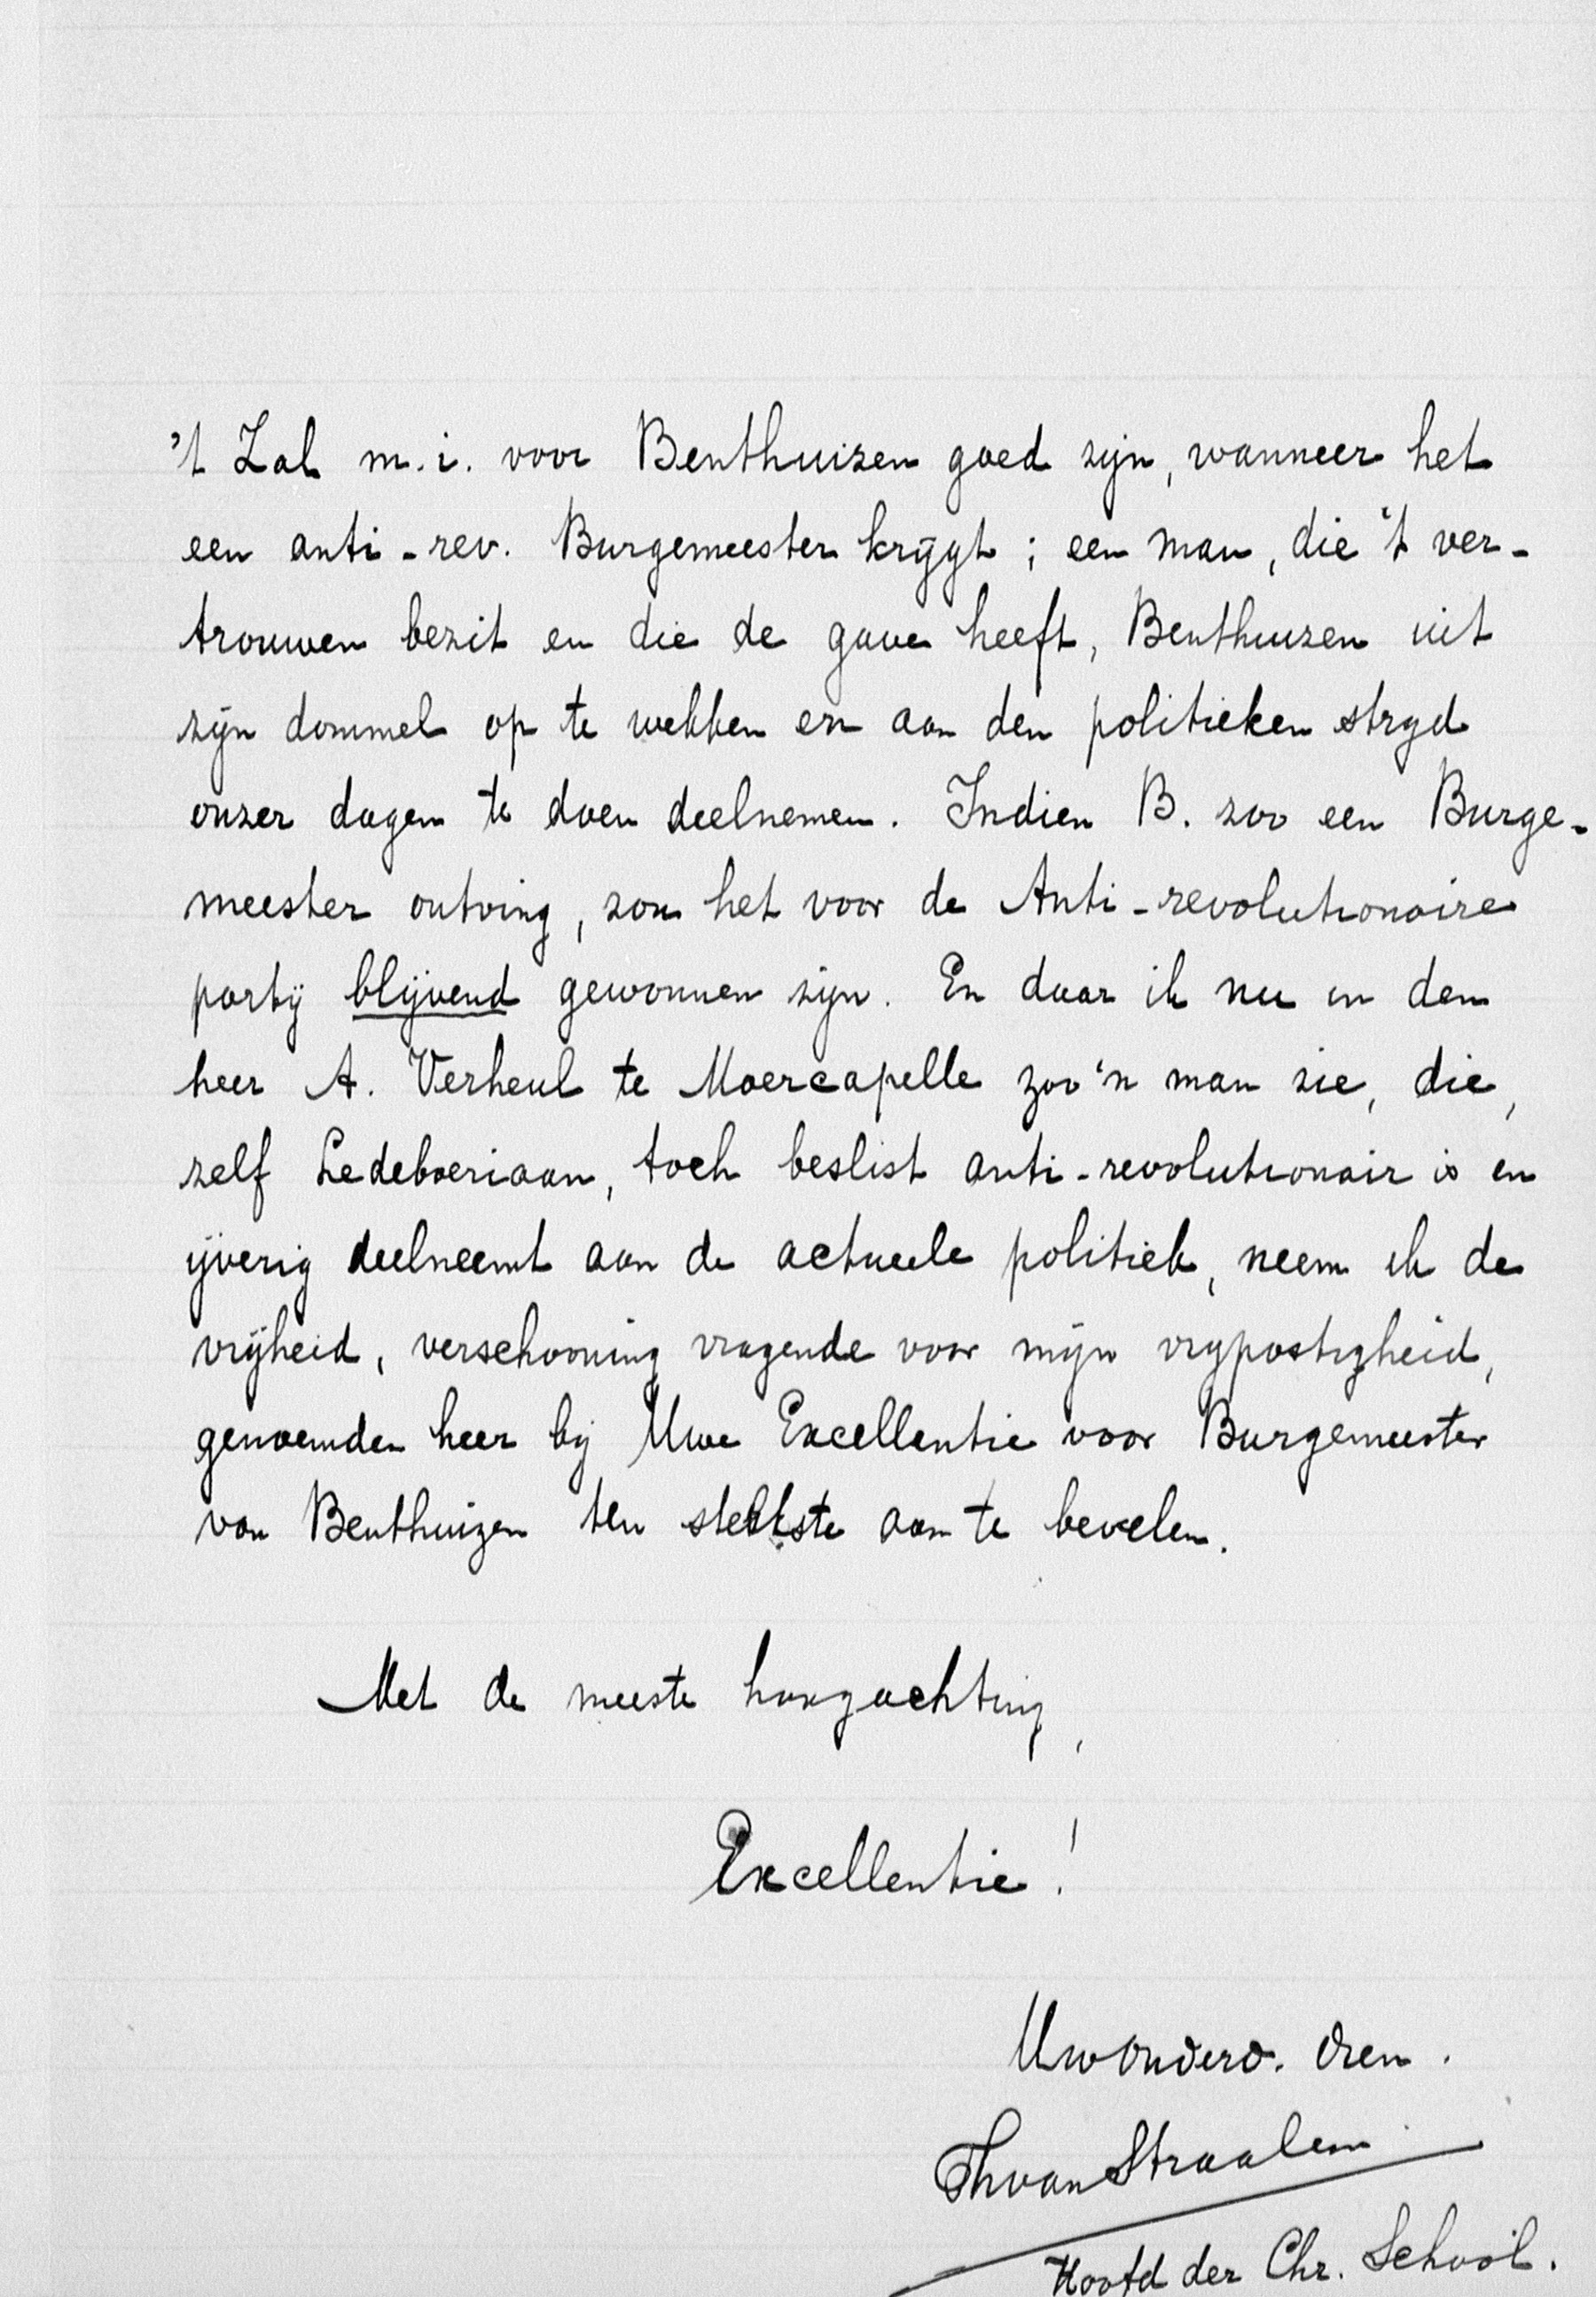 't Zal m.i. voor Benthuizen goed zijn, wanneer het
een anti-rev. Burgemeester krijgt; een man, die 't ver-
trouwen bezit en die de gave heeft, Benthuizen uit
zijn dommel op te wekken en aan den politieken strijd
onzer dagen te doen deelnemen. Indien B. zoo een Burge-
meester ontving, zou het voor de Anti-revolutionaire
partij blijvend gewonnen zijn. En daar ik nu in den
heer A. Verheul te Moercapelle zoo'n man zie, die,
zelf Ledeboeriaan, toch beslist anti-revolutionair is en
ijverig deelneemt aan de actueele politiek, neem ik de
vrijheid, verschooning vragende voor mijn vrijpostigheid,
genoemden heer bij Uwe Excellentie voor Burgemeester
van Benthuizen ten sterkste aan te bevelen.
Met de meeste hoogachting,
Excellentie!
Uw onderd. dien.
Th van Straalen
Hoofd der Chr. School.